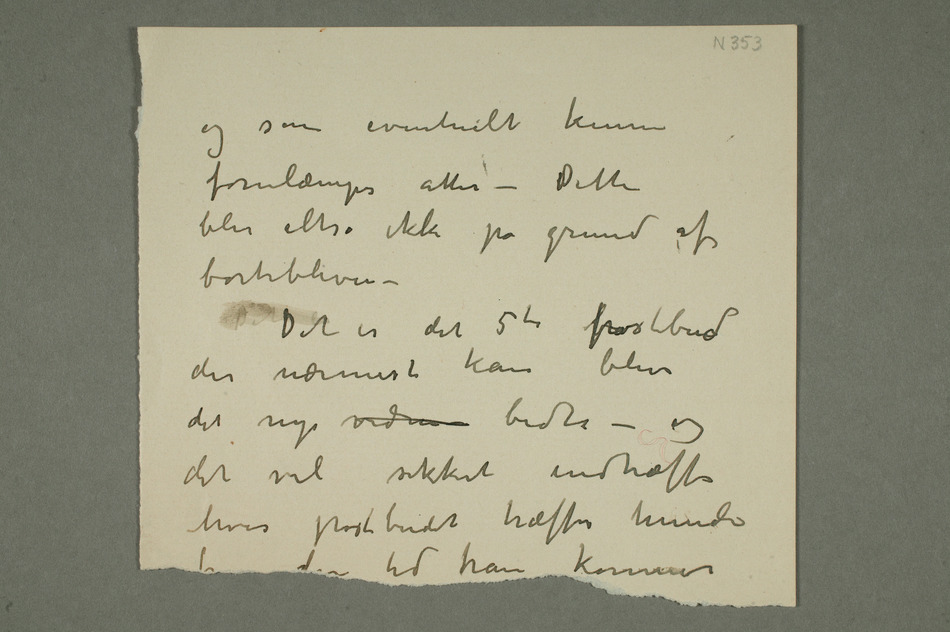 N 353
og som eventuelt kunne
forulæmpes atter – Dette
blev altså ikke på grund af
bortebliven –
Det er det 5te postbud
der nærmest kan blive
det nye bedte – og
det vil sikkert indtræffe
hvis postbudet træffer hunde
den tid han kommer